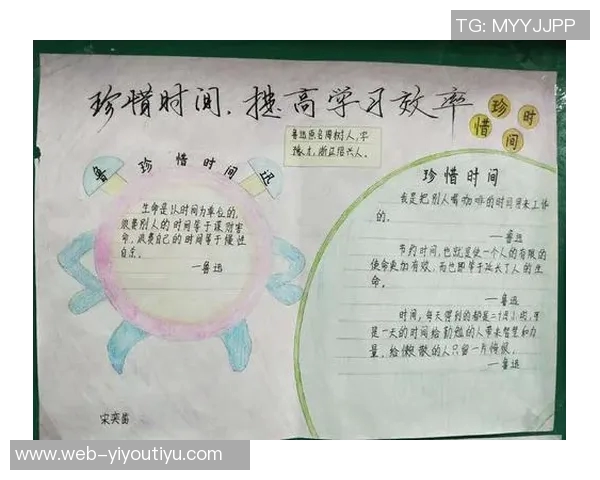 TG: MYYJJPP
珍惜时间，提高学习效率
珍惜时间
鲁迅原名周树人，字
豫才，浙江绍兴人。
鲁迅珍惜时间
生命是以时间为单位的，
浪费别人的时间等于谋财害
命，浪费自己的时间等于慢性
自杀。
—鲁迅
珍惜时间
我是把别人喝咖啡的时间用来工作
的。
—鲁迅
节约时间，也就是使一个人的有限的
使命更加有效，而也即等于延长了人的生
命。
—鲁迅
时间，每天得到的都是二十四小时，可
是一天的时间给勤勉的人带来智慧和力
量，给懒散的人只留一片悔恨。
—鲁迅
宋奕笛
www.web-yiyoutiyu.com